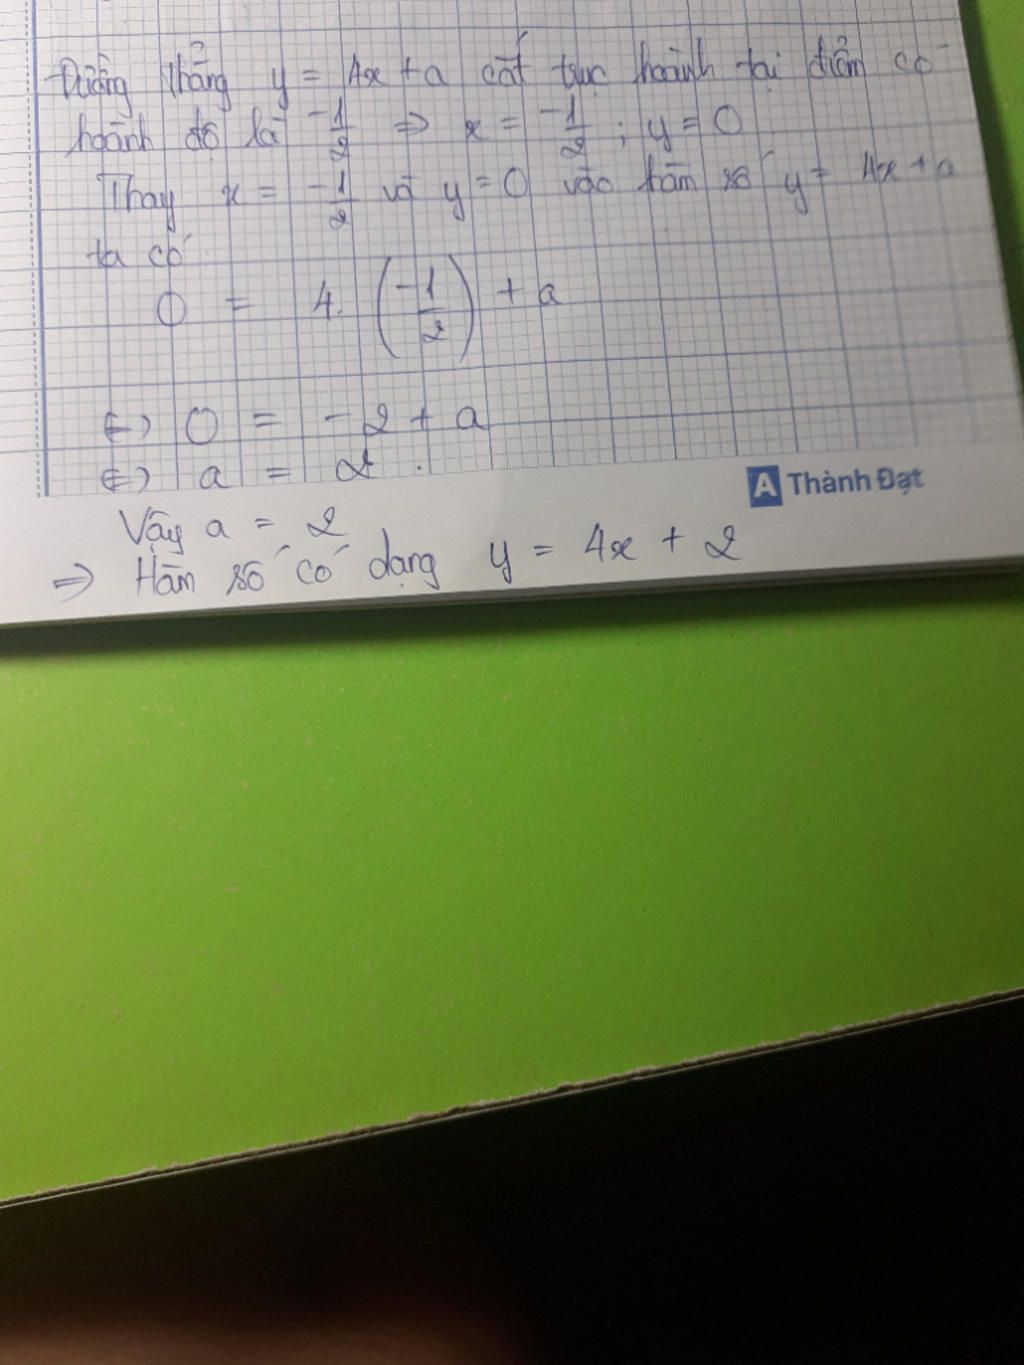 Đường thẳng y = 4x + a cắt trục hoành tại điểm có
hoành độ là -1/2 ⇒ x = -1/2 ; y = 0
Thay x = -1/2 và y = 0 vào hàm số y = 4x + a
ta có
0 = 4. (-1/2) + a
⇔ 0 = -2 + a
⇔ a = 2.
A Thành Đạt
Vậy a = 2
⇒ Hàm số có dạng y = 4x + 2